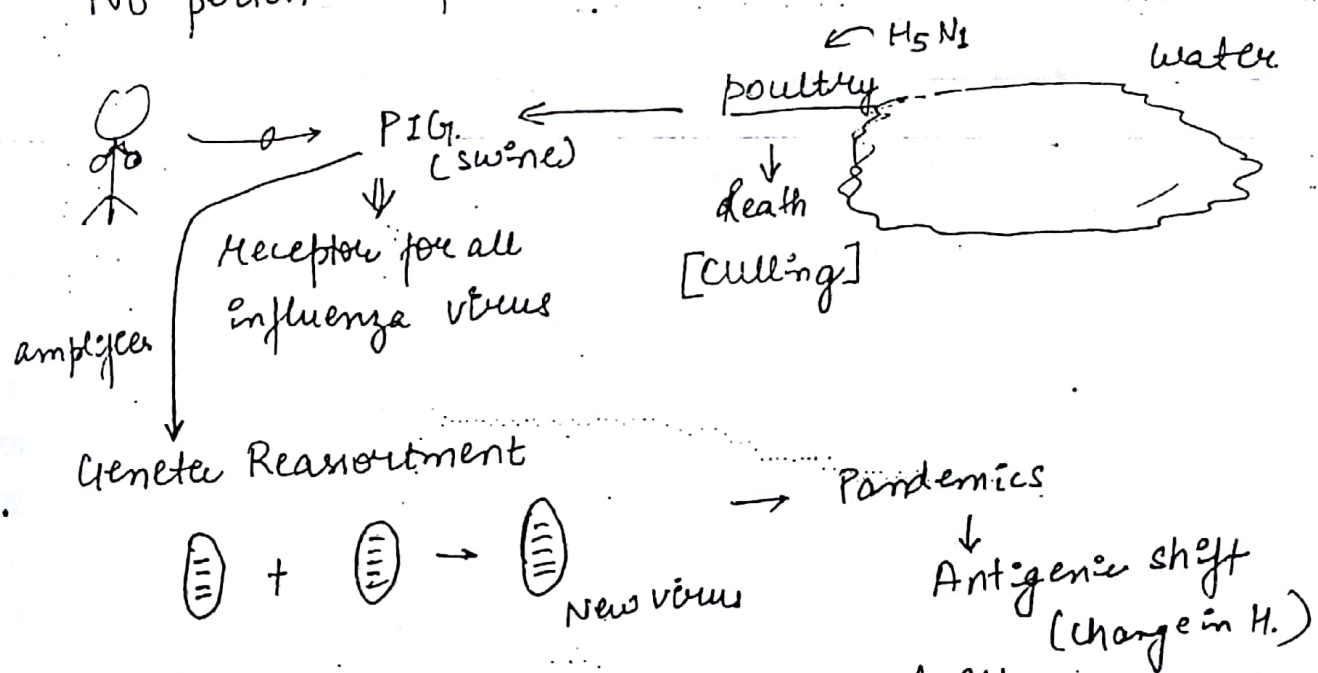 No
H5 N1
water
poultry
PIG.
(swine)
death
[culling]
receptor for all
influenza virus
amplifier
Genetic Reassortment
Pandemics
+
New virus
Antigenic shift
(change in H.)